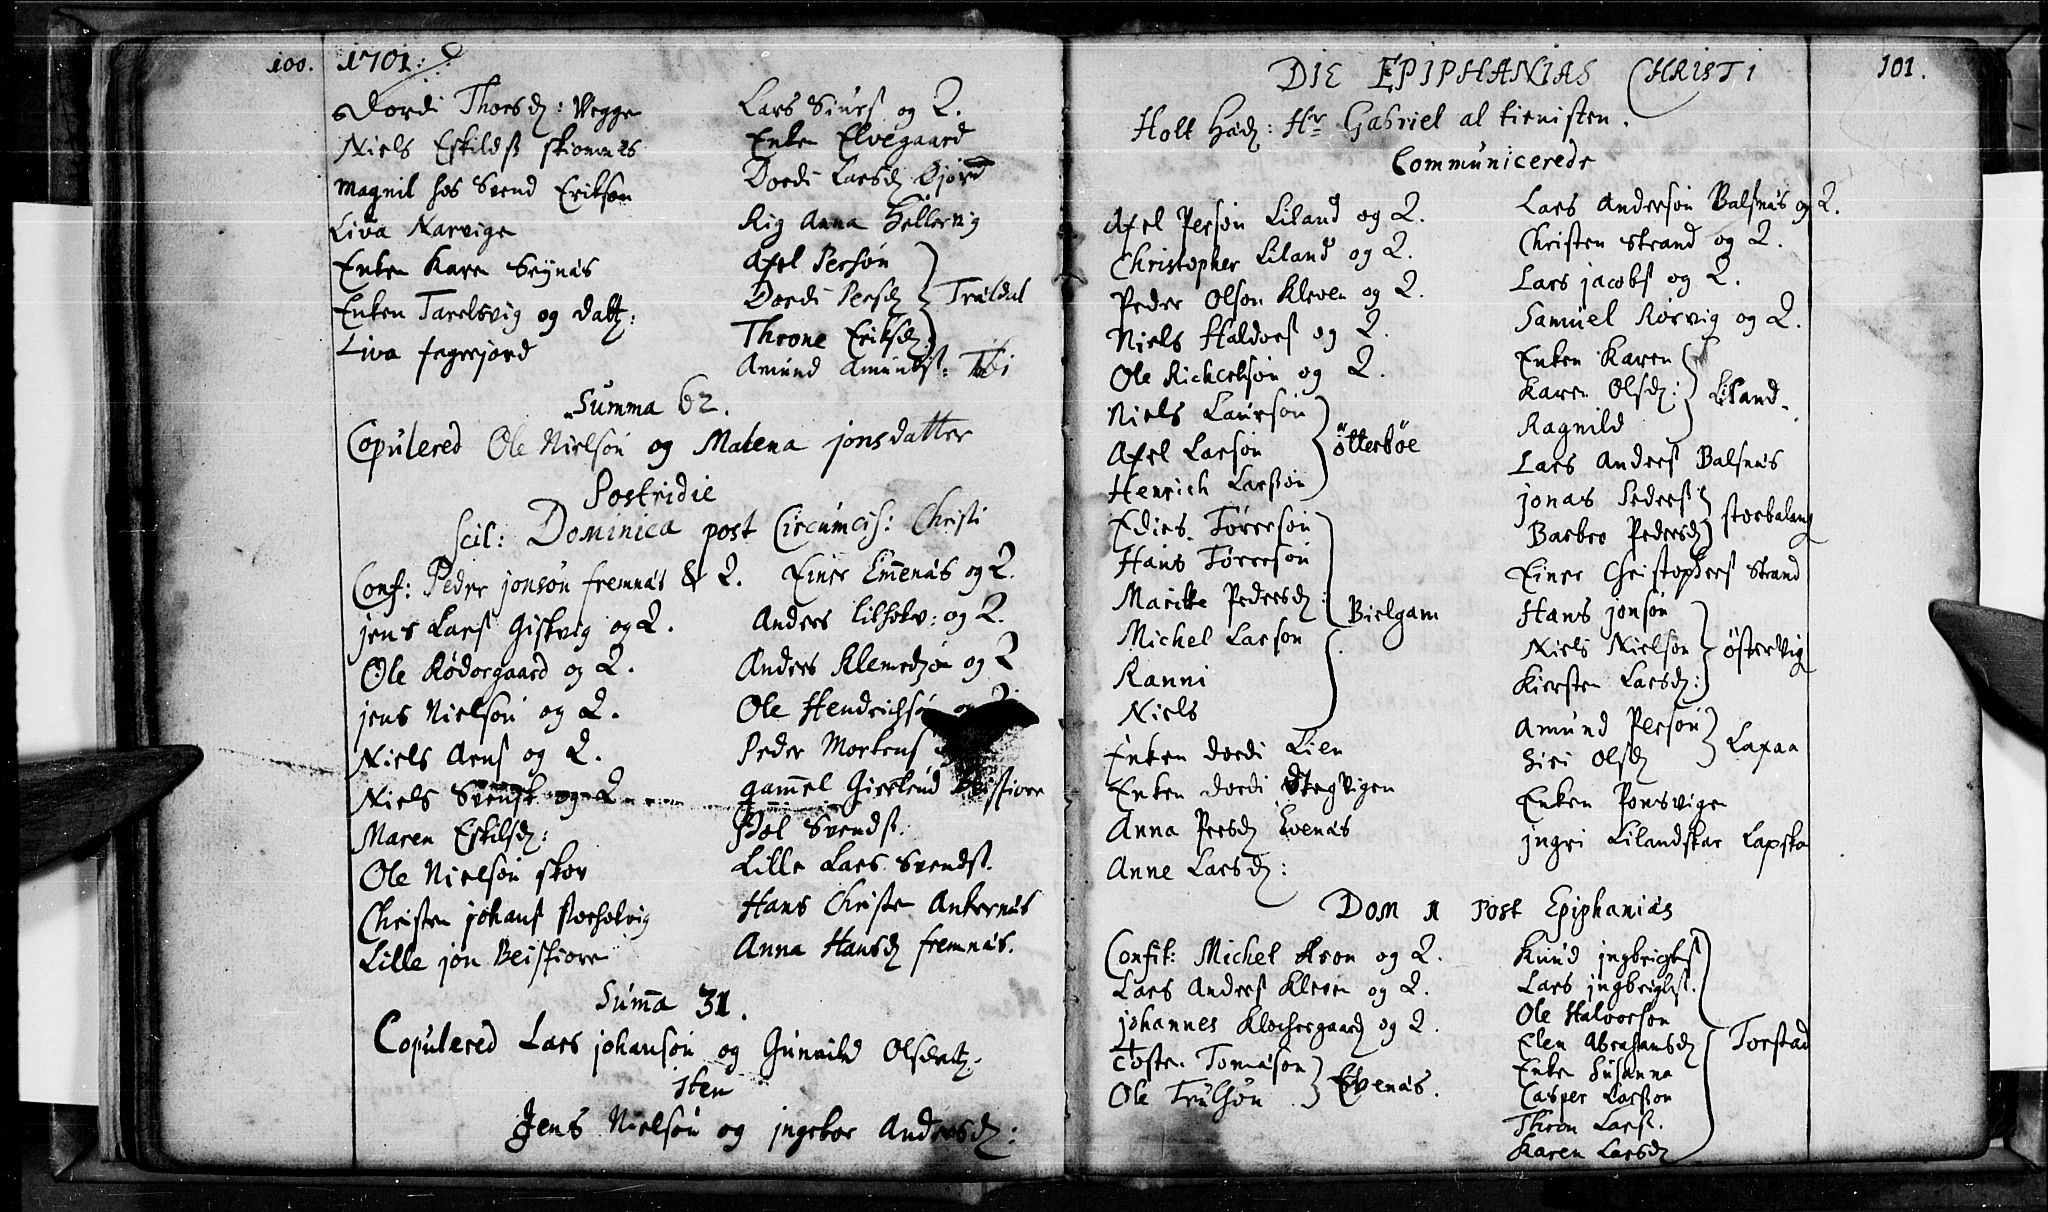 100. 1701.
Dordi Thorsd: Vegge
Niels Eskildß skiomnæs
Magnil hos Svend Erikson
Liva Narvige
Enken Karen Seijnæs
Enken Tarelsvig og datt:
Liva fagerjord
Lars Siurs og Q.
Enken Elvegaard
Dordi Larsd
Rig Anna
Axel Persøn
Dordi Persd
Throne Eriksd
Traldal
Amund Amundß:
Summa 62.
Copulered Ole Nielsøn og Malena jonsdatter
Postridie
Scil: Dominica post Circumcis: Christi
Conf: Peder jonsøn fremnæs & Q.
jens Larß Giskvig og Q.
Ole Kødorgaard og Q.
jens Nielsøn og Q.
Niels Arnß og Q.
Niels Svensk og Q
Maren Eskilsd:
Ole Nielsøn skov
Christen johanß
Lille jon Beisfiore
Einer Emenæs og Q.
Anders og Q.
Anders Klemedzøn og Q
Ole Hendrichsøn og
Peder Mortens
Gammel Giertrud Beisfiore
Pol Svendß.
Lille Lars Svendß.
Hans Christen Ankernæs
Anna Hansd fremnæs.
Summa 31.
Copulered Lars johansøn og Gunnild Olsdatt.
iten
Jens Nielsøn og jngebor Andersd:
DIE EPIPHANIAS CHRISTI 101.
Holt Hr Gabriel al tienisten.
Communicerede
Axel Persøn Liland og Q.
Christopher Liland og Q.
Peder Olson Kleven og Q.
Niels Haldorß og Q.
Ole Richertsøn og Q.
Niels Laursøn
Axel Larsøn
Henrich Larßøn
øtterbøe
Edies Tørresøn
Hans Tørresøn
Maritte Pedersd:
Michel Larson
Ranni
Niels
Bielgam
Enken dordi Lien
Enken dordi StegVigen
Anna Persd Evenæs
Anne Larsd:
Lars Andersøn Balsnæs og Q.
Christen Strand og Q.
Lars jacobß og Q.
Samuel Rørvig og Q.
Enken Karen
Karen Olsd:
Ragnild
Liland.
Lars Anderß Balsnæs
jonas Pederß
Barbro Pedersd
storbalang
Einer Christopherß Strand
Hans jonsøn
Niels Nielsøn
Kiersten Larsd:
østerVig
Amund Persøn
Siri Olsd
Lapaa
Enken Ponsvigen
jngri Lilandskar Lapsko
Dom 1 Post Epiphanias
Confit: Michel Kron og Q.
Lars Anderß Kleven og Q.
johannes Klochergaard og Q.
Toste Tomæson
Ole Trulsøn
Evenæs.
Knud jngbrigtß
Lars jngbrigtß.
Ole Halvorson
Elen Abrahamsd
Enke Susanna
Casper Larßon
Thron Larß.
Karen Larsd
Torstad